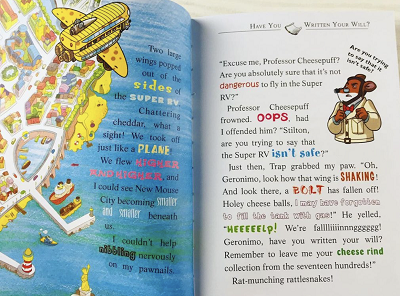 Two large
wings popped
out of the
sides of
the SUPER RV
Chattering
cheddar, what a
sight! We took off
just like a PLANE.
We flew HIGHER
AND HIGHER, and
I could see New Mouse
City becoming smaller
and smaller beneath
us.
I couldn't help
nibbling nervously
on my pawnails.
HAVE YOU WRITTEN YOUR WILL?
Are you trying
to say that it
isn't safe?
"Excuse me, Professor Cheesepuff?
Are you absolutely sure that it's not
dangerous to fly in the Super
RV?"
Professor Cheesepuff
frowned. OOPS, had
I offended him? "Stilton,
are you trying to say that
the Super RV isn't safe?"
Just then, Trap grabbed my paw. "Oh,
Geronimo, look how that wing is SHAKING!
And look there, a BOLT has fallen off!
Holey cheese balls, I may have forgotten
to fill the tank with gas!" He yelled,
"HEEEEELP! We're falllliiiinnngggggg!
Geronimo, have you written your will?
Remember to leave me your cheese rind
collection from the seventeen hundreds!"
Rat-munching rattlesnakes!